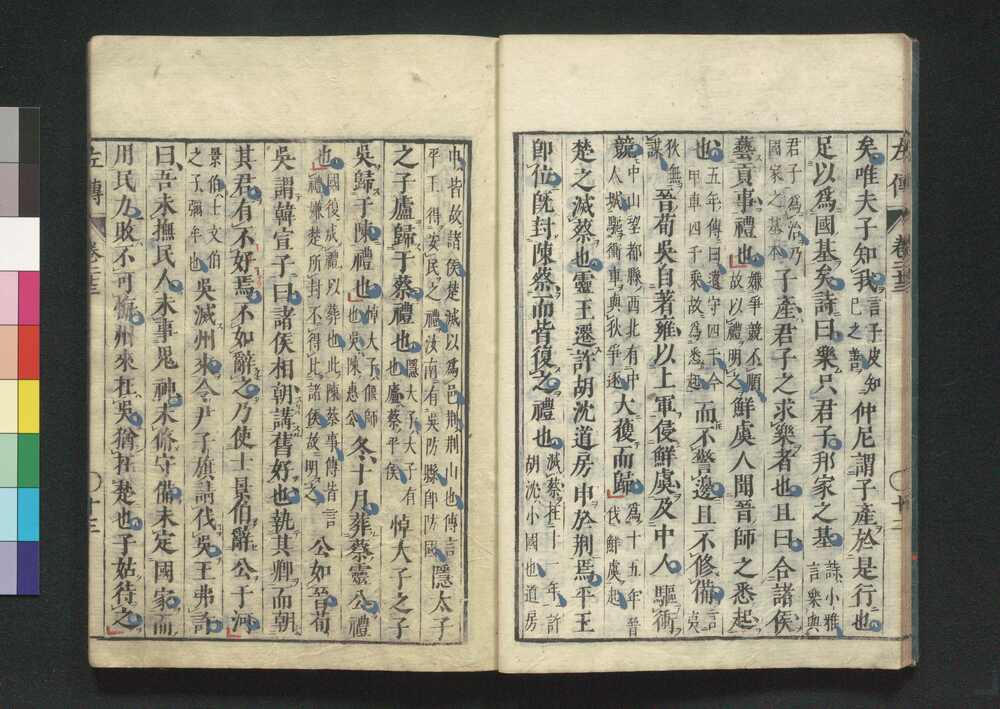 左傳 卷二十三 十二
矣唯夫子知我言子皮知己之善仲尼謂子產於是行也
足以爲國基矣詩曰樂只君子邦家之基詩小雅言樂與
君子爲治乃國家之基本子產君子之求樂者也且曰合諸侯
藝貢事禮也嫌爭競不順故以禮明之鮮虞人聞晉師之悉起
也五年傳曰遺守四千今甲車四千乘故爲悉起而不警邊且不修備言夷
狄無謀晉荀吳自著雍以上軍侵鮮虞及中人驅衝
競中山望都縣西北有中人城驅衝車與狄爭逐大獲而歸爲十五年晉伐鮮虞起
楚之滅蔡也靈王遷許胡沈道房申於荆焉平王
卽位旣封陳蔡而皆復之禮也滅蔡在十一年許胡沈小國也道房
申皆故諸侯楚滅以爲邑荆荆山也傳言平王得安民之禮汝南有吳防縣卽防國隱太子
之子廬歸于蔡禮也隱大子大子有也廬蔡平侯悼大子之子
吳歸于陳禮也悼大子偃師也吳陳惠公冬十月葬蔡靈公禮
也國復成禮以葬也此陳蔡事傳皆言禮嫌楚所封不得比諸侯故明之公如晉荀
吳謂韓宣子曰諸侯相朝講舊好也執其卿而朝
其君有不好焉不如辭之乃使士景伯辭公于河
景伯士文伯之子彌牟也吳滅州來令尹子旗請伐吳王弗許
曰吾未撫民人未事鬼神未修守備未定國家而
用民力敗不可悔州來在吳猶在楚也子姑待之
左傳 卷二十三 十三